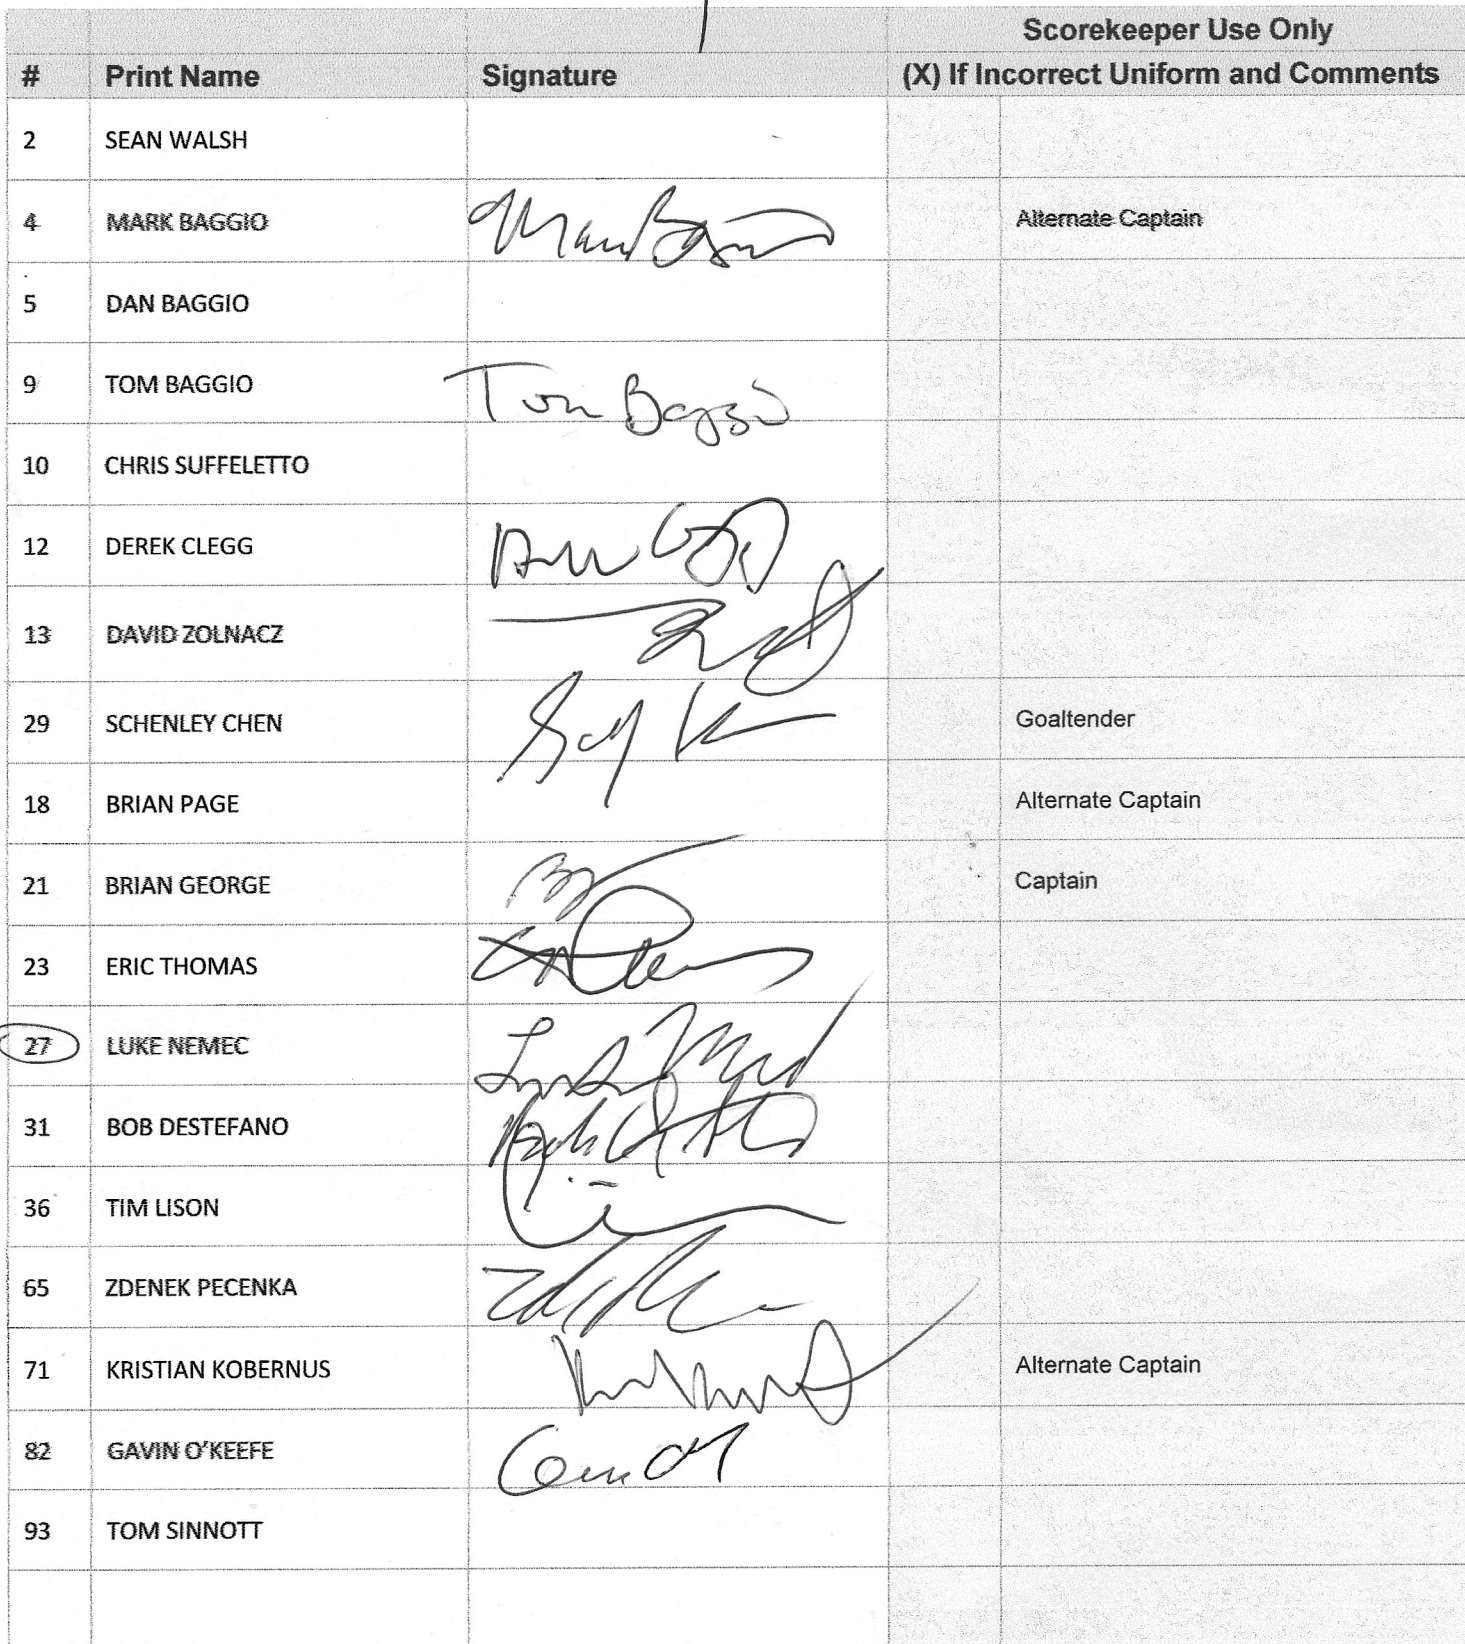 Scorekeeper Use Only
# Print Name Signature (X) If Incorrect Uniform and Comments
2 SEAN WALSH
4 MARK BAGGIO Alternate Captain
5 DAN BAGGIO
9 TOM BAGGIO Tom Baggio
10 CHRIS SUFFELETTO
12 DEREK CLEGG
13 DAVID ZOLNACZ
29 SCHENLEY CHEN Goaltender
18 BRIAN PAGE Alternate Captain
21 BRIAN GEORGE Captain
23 ERIC THOMAS
27 LUKE NEMEC
31 BOB DESTEFANO
36 TIM LISON
65 ZDENEK PECENKA
71 KRISTIAN KOBERNUS Alternate Captain
82 GAVIN O'KEEFE
93 TOM SINNOTT